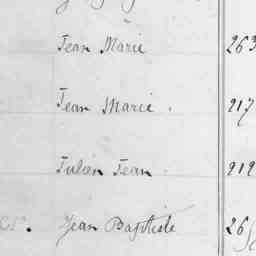 Jean Marie 263
Jean Marie . 217
Julien Jean 212
Jean Baptiste 26